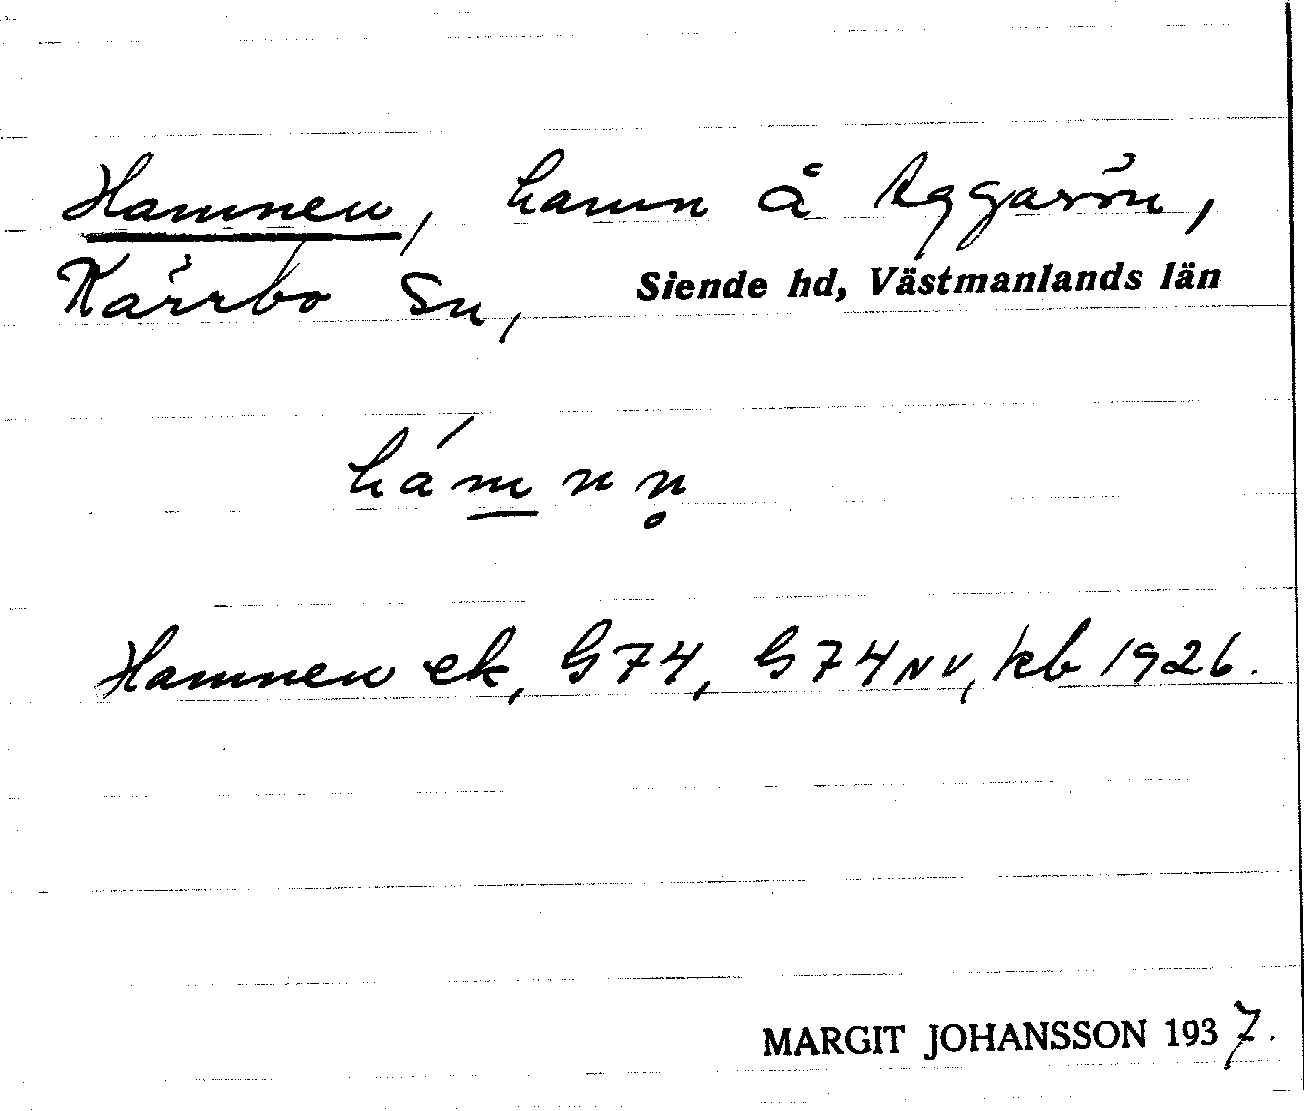 Hamnen, hamn å Aggarön,
Kärrbo sn, Siende hd, Västmanlands län
hámnn̥
Hamnen ek, G74, G74NV, kb 1926.
MARGIT JOHANSSON 1937.